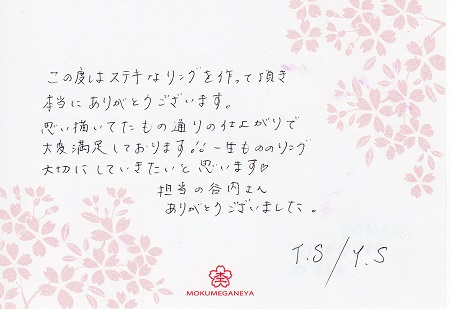 この度はステキなリングを作って頂き
本当にありがとうございます。
思い描いてたもの通りの仕上がりで
大変満足しております!! 一生もののリング
大切にしていきたいと思います♡
担当の谷内さん
ありがとうございました。
T.S/Y.S
MOKUMEGANEYA